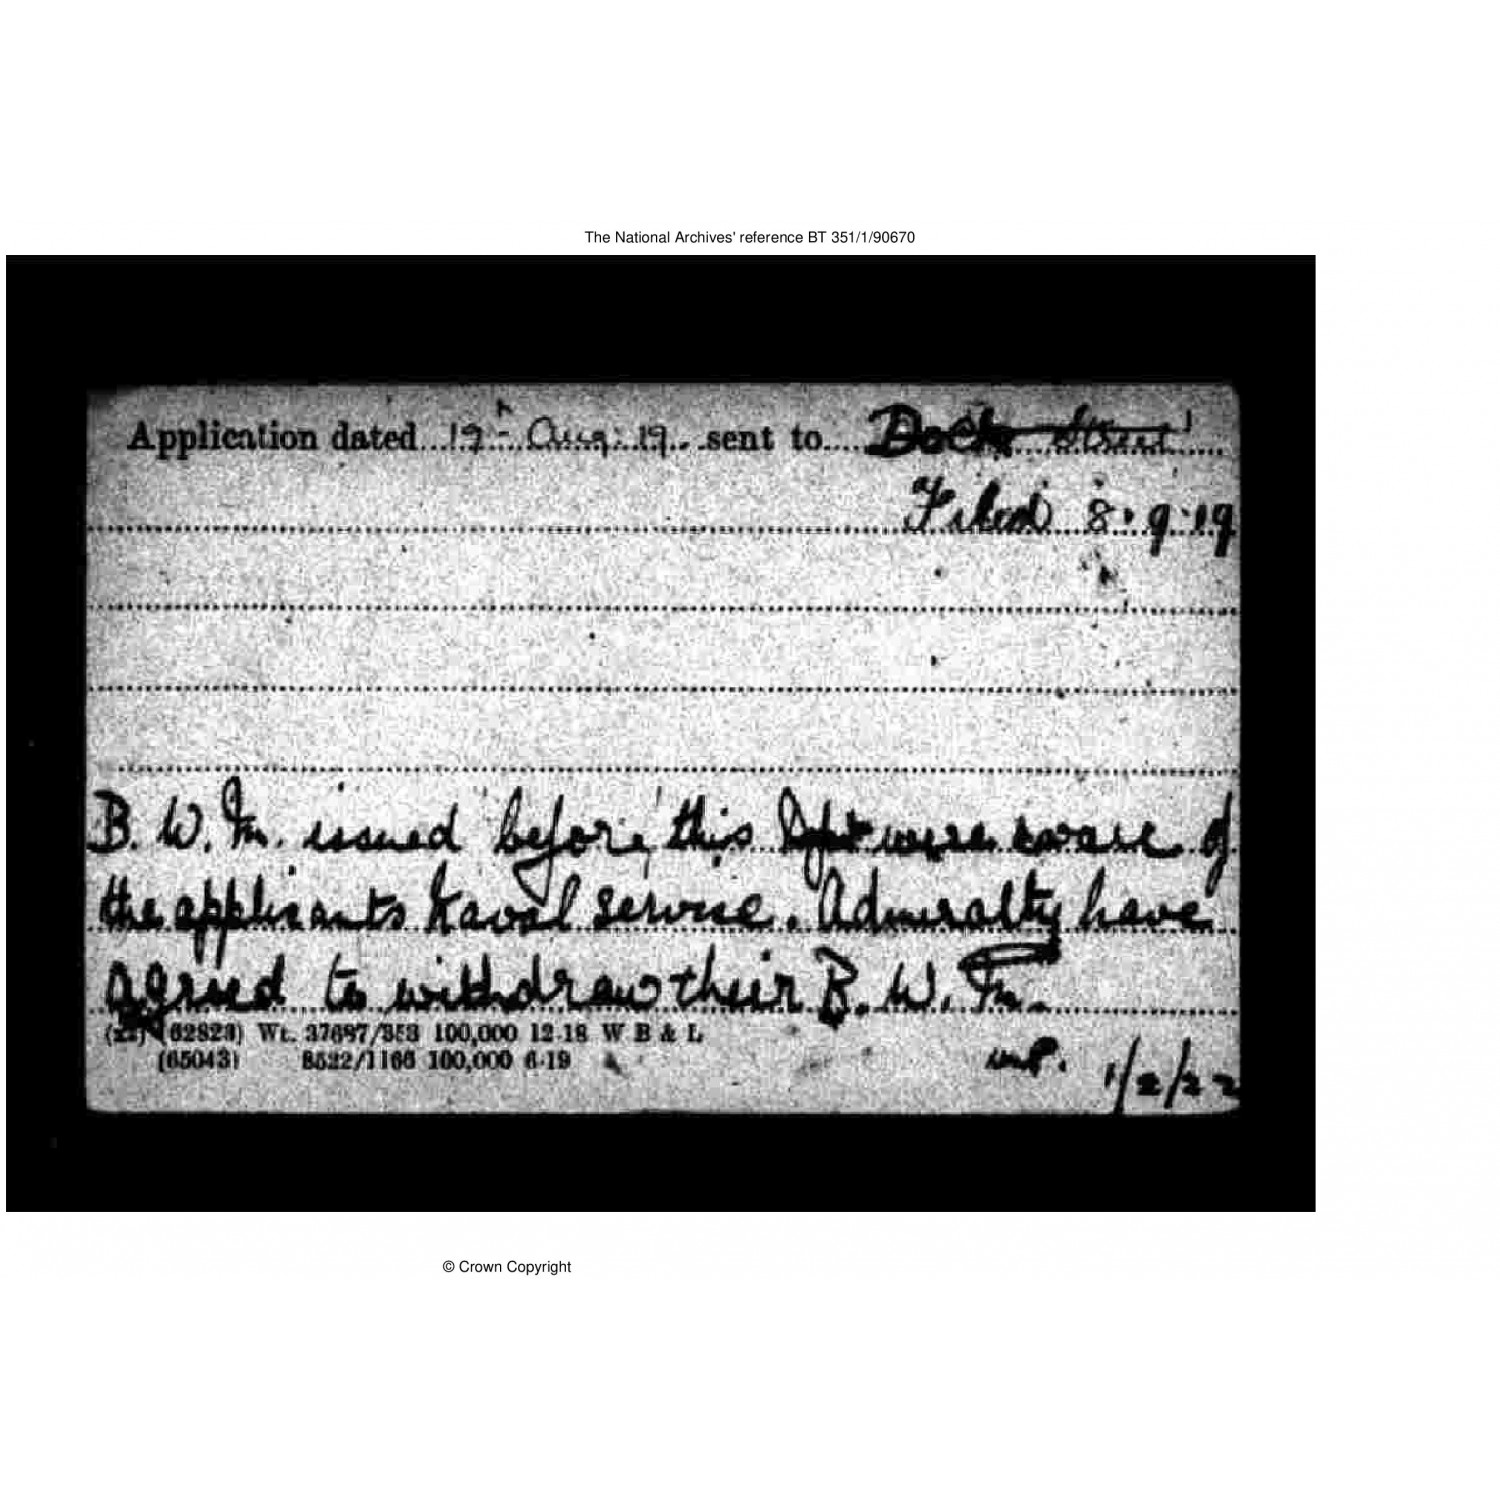 The National Archives' reference BT 351/1/90670
Application dated 12 - Aug: 19 sent to Dock Street
Filed 8.9.19
B.W.M. issued before this Dept were aware of
the applicants Naval service. Admiralty have
agreed to withdraw their B.W.M.
(62823) Wt. 37687/353 100,000 12-18 W B & L
(65043) 8522/1166 100,000 6-19
1/2/22
© Crown Copyright